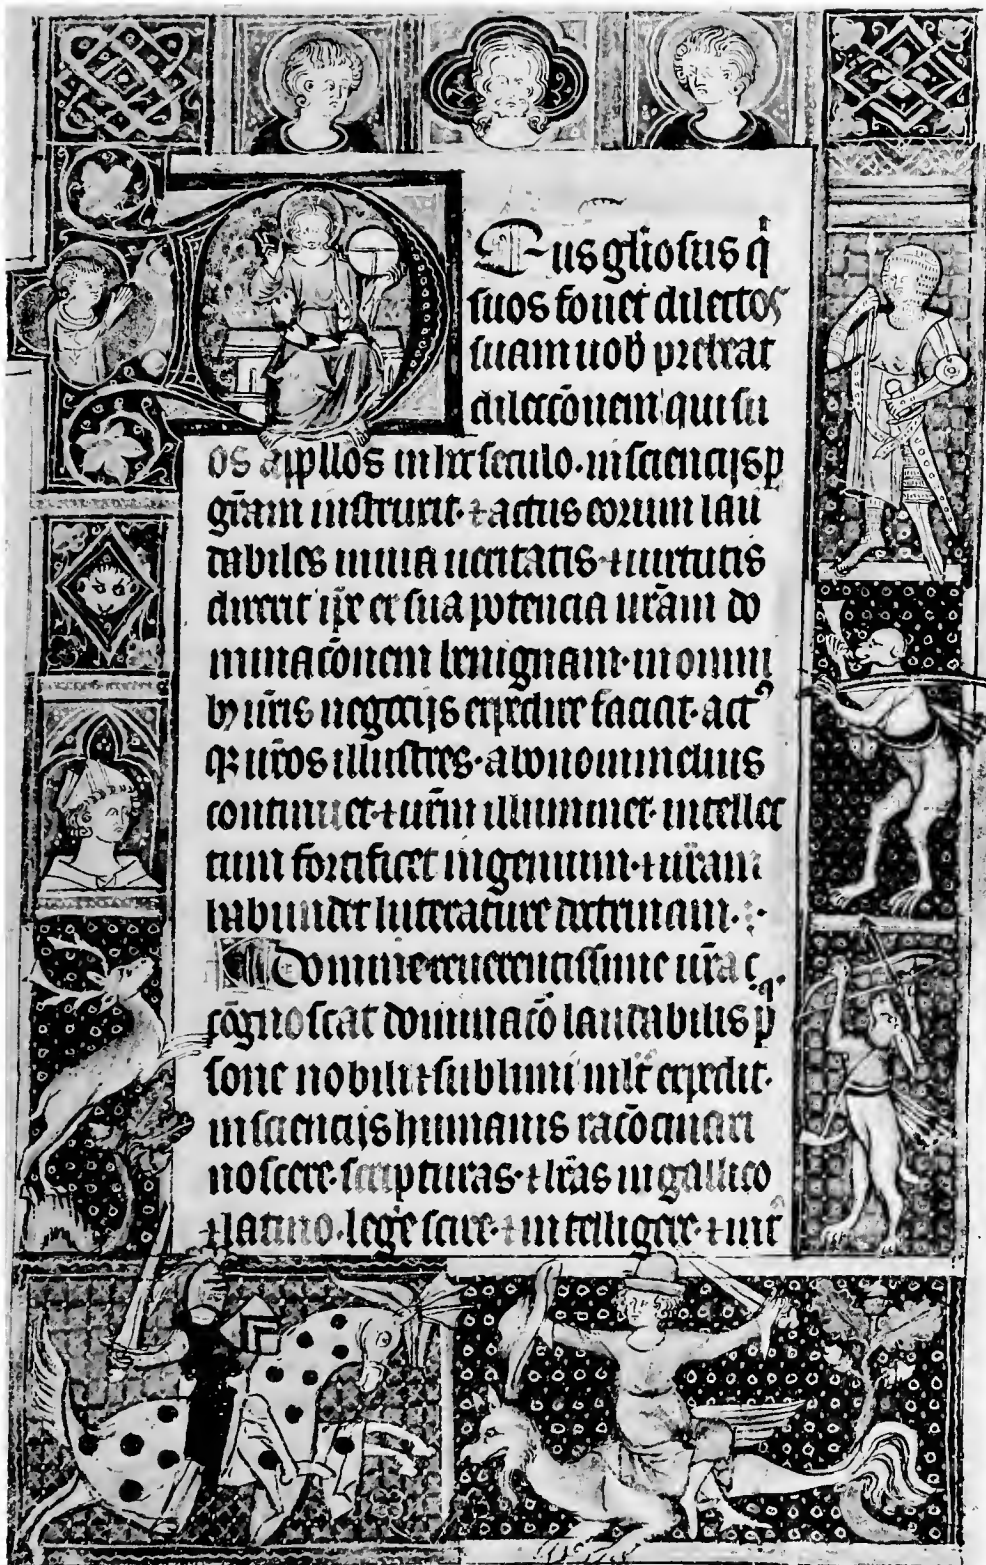 Eus gl̅iosus q̇
suos fouet dilectos
suam uob̅ prebeat
dilecc̅onem qui su
os app̅llos in hoc seculo · in sciencijs p̱
gr̅am instruxit · ⁊ actus eorum lau
dabiles in uia ueritatis · ⁊ uirtutis
direxit ip̅e et sua potencia ur̅am do
minac̅onem benignam · in omni
bꝫ ur̅is negocijs expedire faciat · act
qꝫ ur̅os illustres · a bono in melius
continuet · ⁊ ur̅m illuminet · intellec
tum fortificet ingenium · ⁊ ur̅am
habundet litterature doctrinam ·
Domine reuerentissime ur̅a
cognoscat dominac̅o laudabilis p̱
sone nobili ⁊ sublimi ml̅t expedit ·
in sciencijs humanis rac̅ocinari
noscere · scripturas · ⁊ lr̅as in gallico
⁊ latino · leg̅e scire · ⁊ intelligere · ⁊ int̅